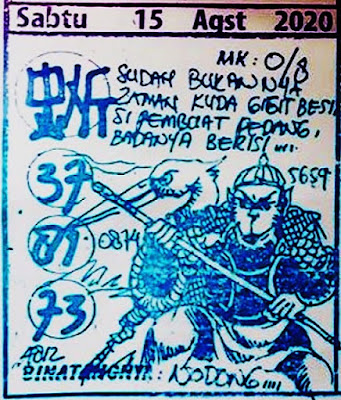 Sabtu 15 Agst 2020
MK: 0/8
SUDAH BUKAN NYA
ZAMAN KUDA GIGIT BESI,
SI PEMBUAT PEDANG,
BADANYA BERISI ....
37
5659
81
0874
73
4012
BINATANGNYA: NODONG....